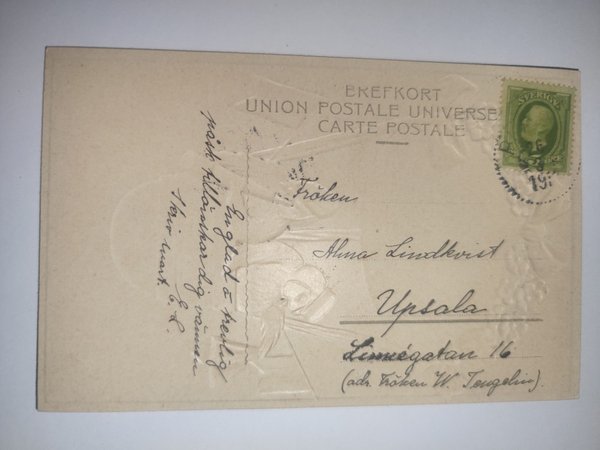 BREFKORT
UNION POSTALE UNIVERSE
CARTE POSTALE
SVERIGE
En glad & trevlig
påsk tillönskar dig vännen
E. L.
Skriv snart.
Fröken
Alma Lindkvist
Upsala
Linnégatan 16
(adr. Fröken W. Tengelin).